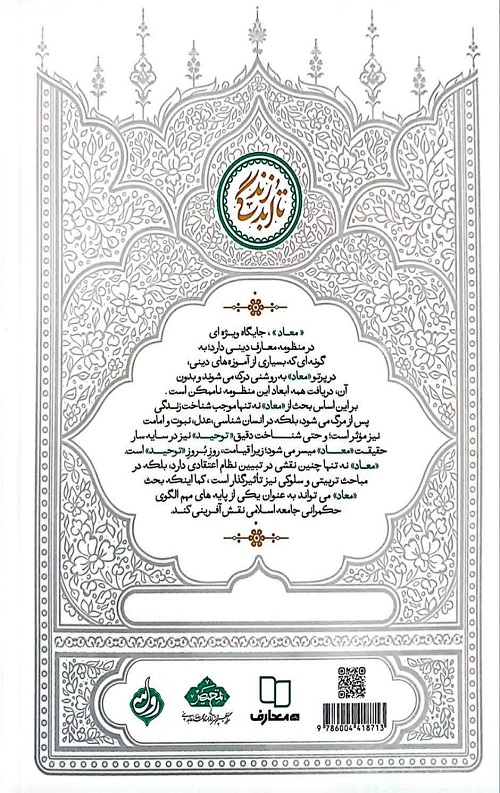 زندگی تا ابدیت
«معاد»، جایگاه ویژه ای
در منظومه معارف دینی دارد؛ به
گونه ای که بسیاری از آموزه های دینی،
در پرتو «معاد» به روشنی درک می شوند و بدون
آن، دریافت همه ابعاد این منظومه ناممکن است.
بر این اساس بحث از «معاد» نه تنها موجب شناخت زندگی
پس از مرگ می شود، بلکه در انسان شناسی، عدل، نبوت و امامت
نیز مؤثر است؛ و حتی شناخت دقیق «توحید» نیز در سایه سار
حقیقت «معاد» میسر می شود؛ زیرا قیامت، روزِ بُروزِ «توحید» است.
«معاد» نه تنها چنین نقشی در تبیین نظام اعتقادی دارد، بلکه در
مباحث تربیتی و سلوکی نیز تأثیرگذار است، کما اینکه بحث
«معاد» می تواند به عنوان یکی از پایه های مهم الگوی
حکمرانی جامعه اسلامی نقش آفرینی کند.
معارف
9 786004 418713